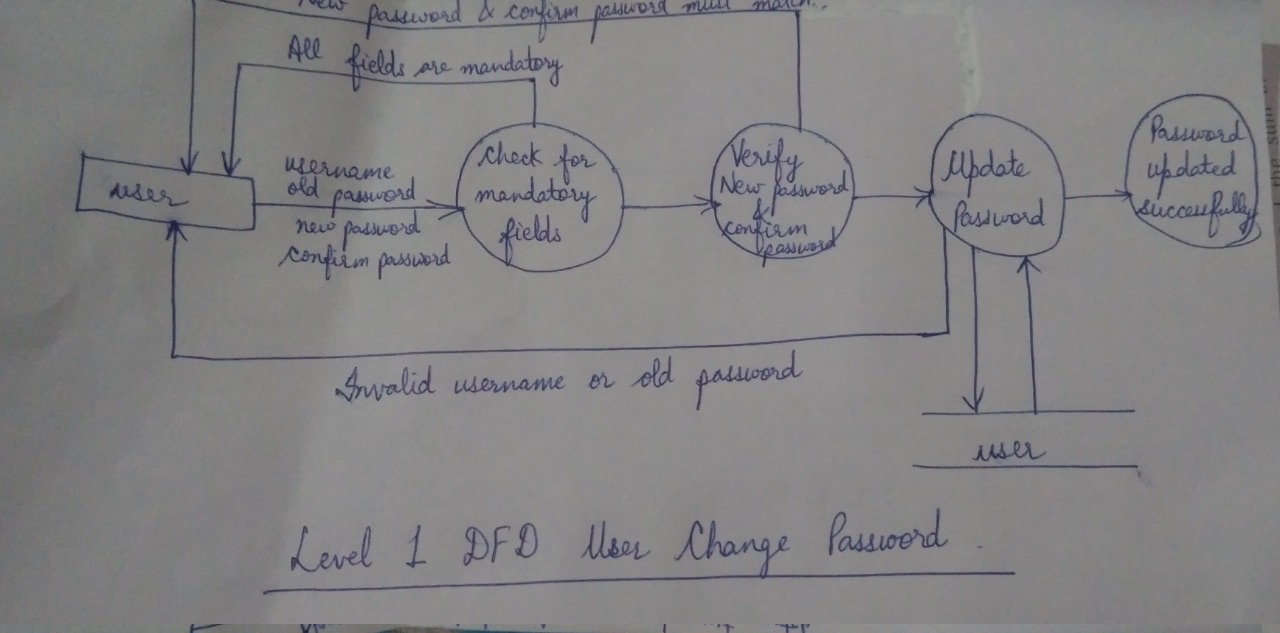 New password & confirm password must match.
All fields are mandatory
user
username
old password
new password
confirm password
Check for
mandatory
fields
Verify
New password
&
confirm
password
Update
Password
Password
updated
successfully
Invalid username or old password
user
Level 1 DFD User Change Password.